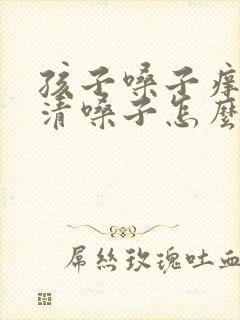 孩子嗓子痒
清嗓子怎麼
屌絲玫瑰吐血